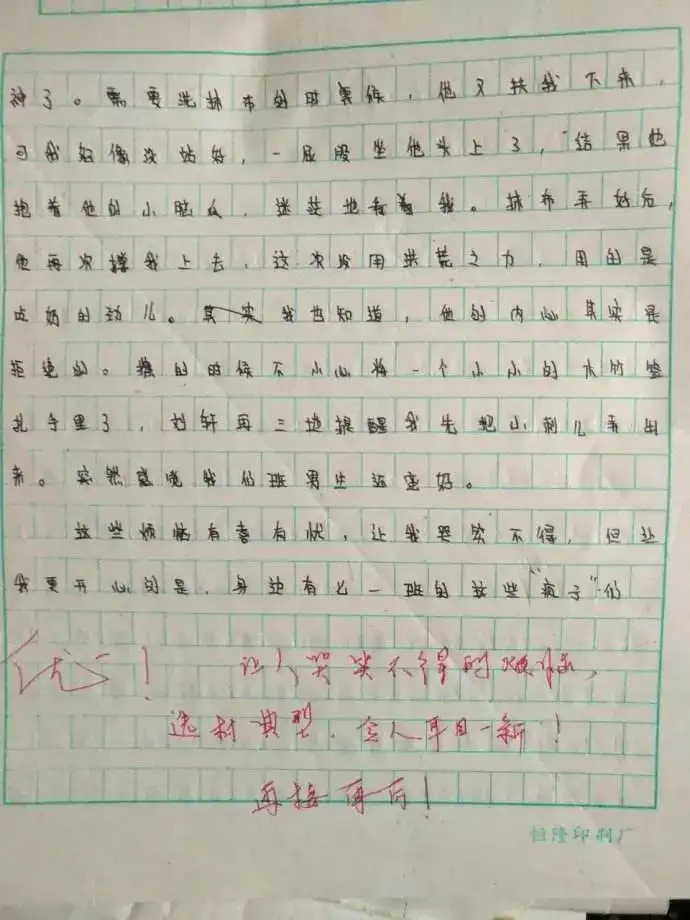 神了。需要洗抹布的时候,他又扶我下来,
可我好像没站好,一屁股坐他头上了,结果他
抱着他的小脑瓜,迷茫地看着我。抹布弄好后,
他再次撑我上去,这次没用洪荒之力,用的是
吃奶的劲儿。其实我也知道,他的内心其实是
拒绝的。擦的时候不小心将一个小小的木竹签
扎手里了,刘轩再三地提醒我先把小刺儿弄出
来。突然感觉我们班男生还蛮奶。
这些烦恼有喜有忧,让我哭笑不得,但让
我更开心的是,身边有七一班的这些“疯子”们
优! 让人哭笑不得的烦恼,
选材典型,令人耳目一新!
再接再厉!
恒隆印刷厂